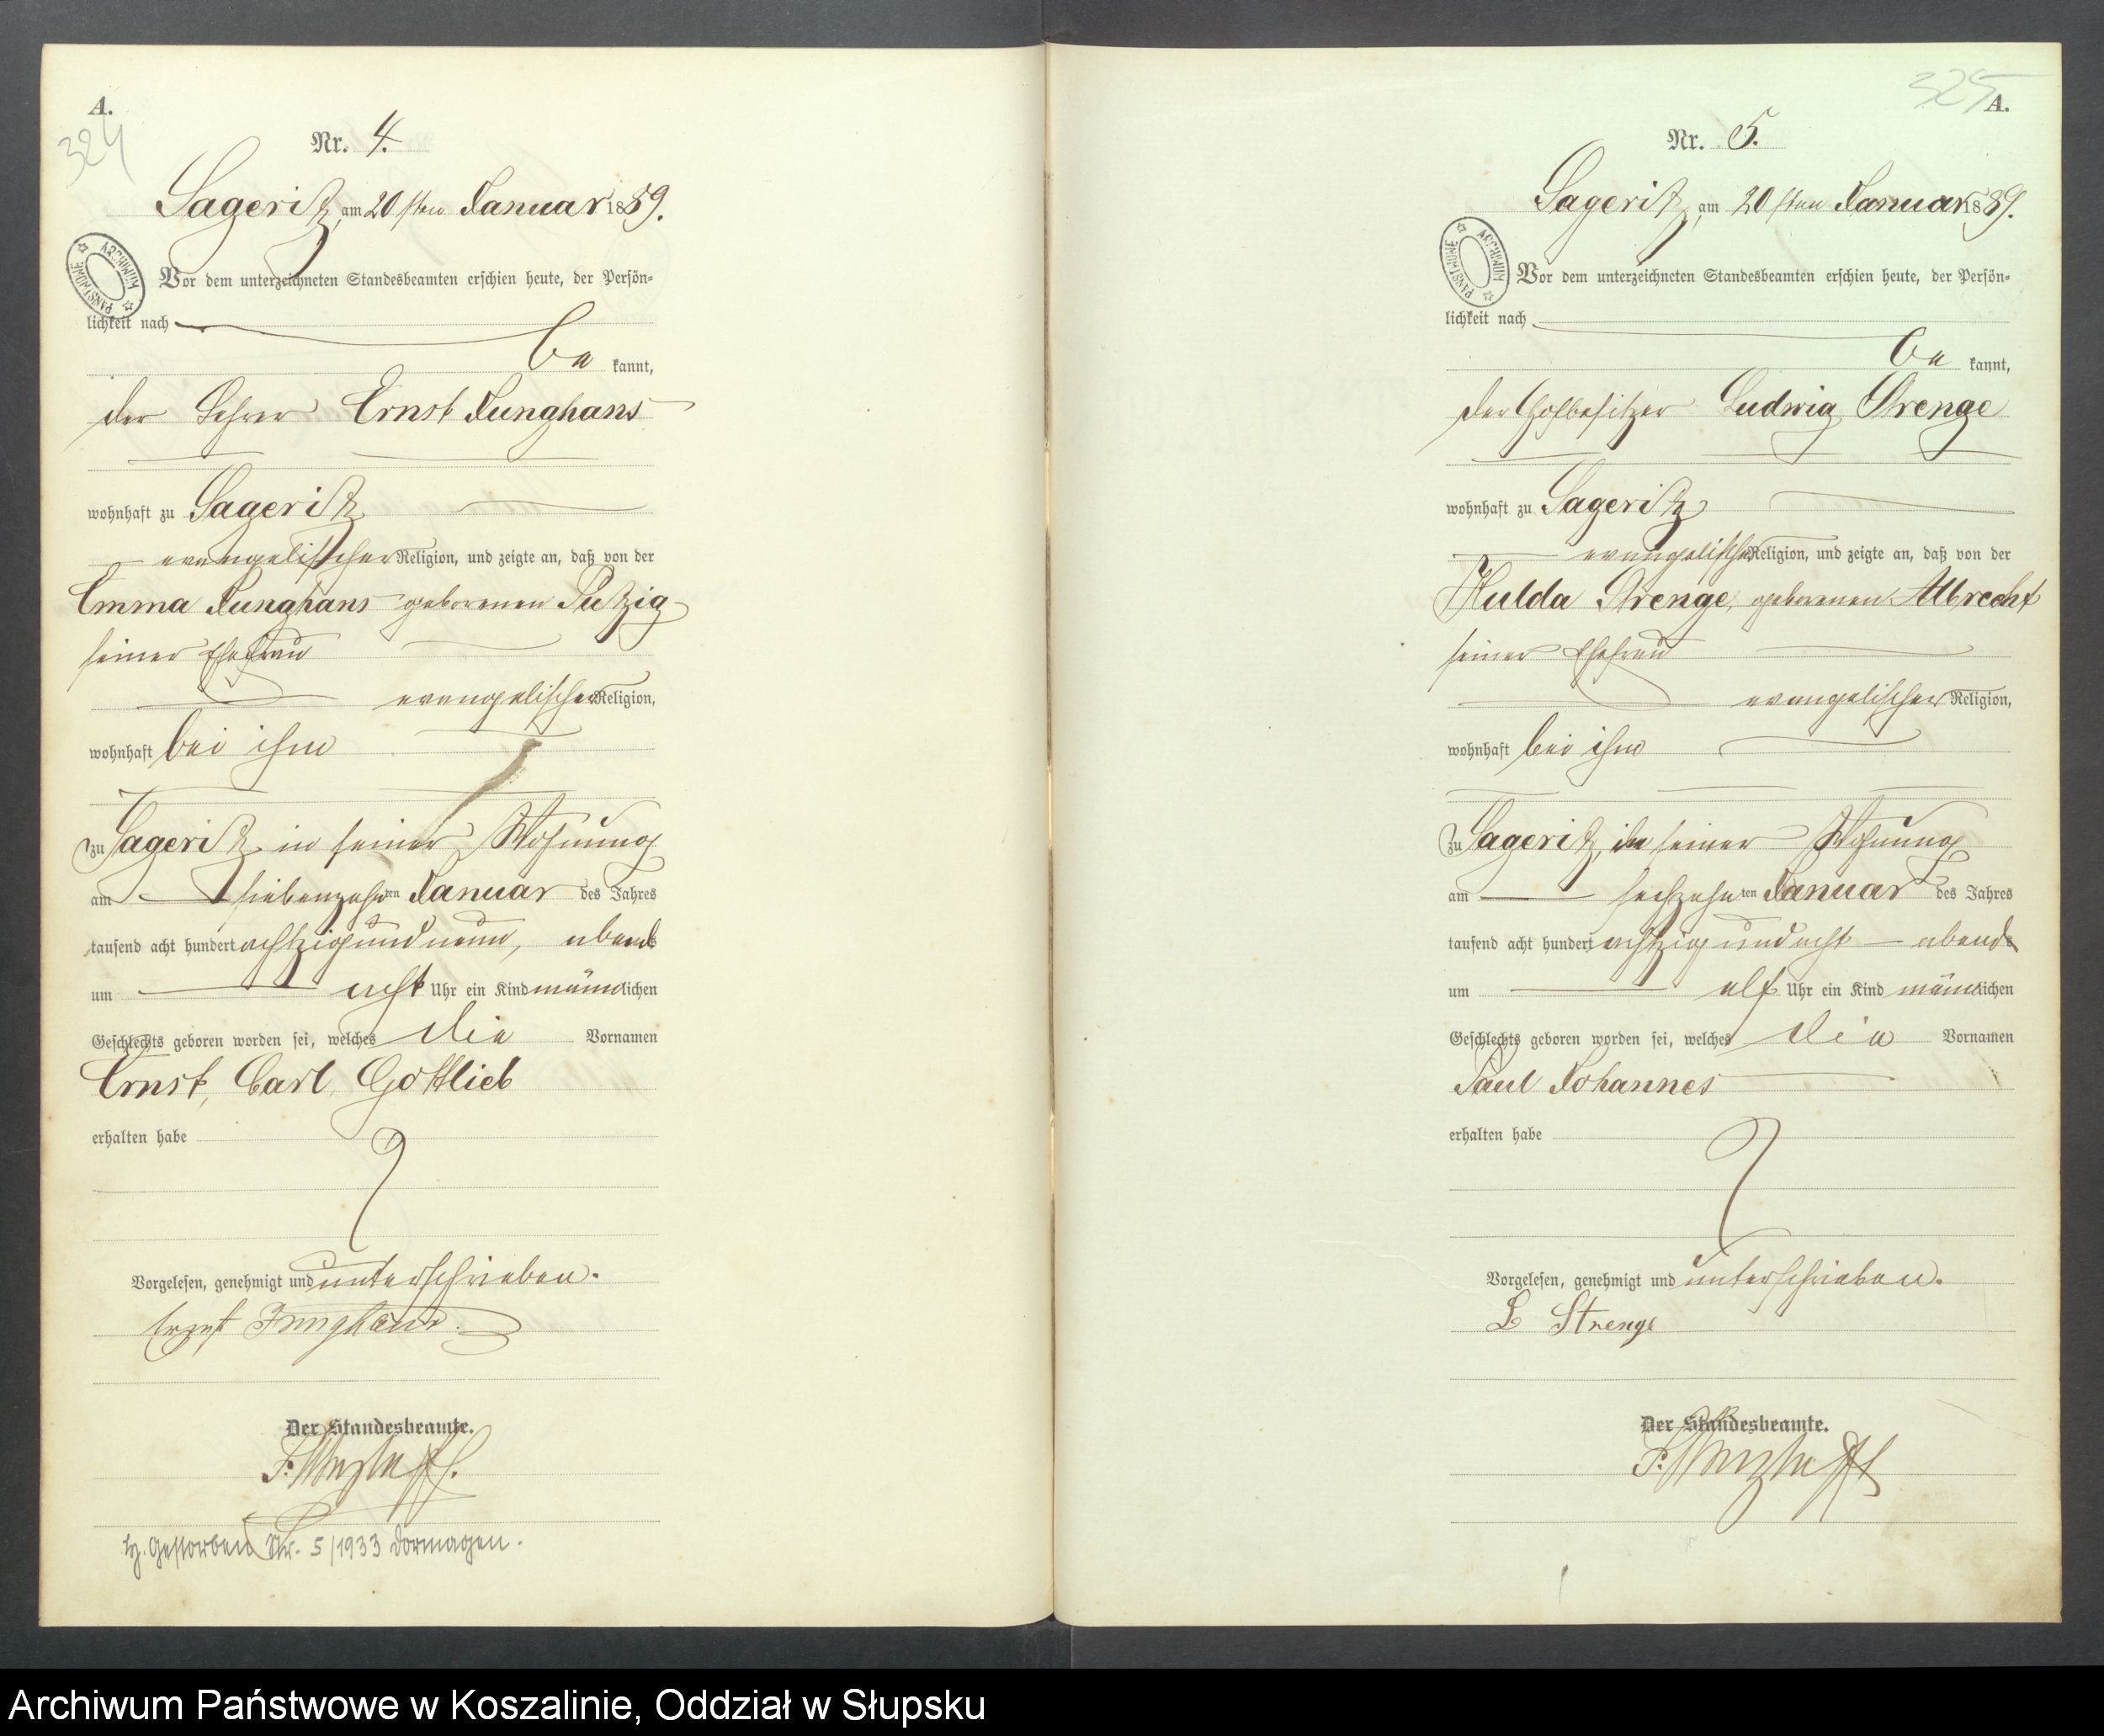 A.
324
Nr. 4.
Sageritz, am 20sten Januar 1889.
ARCHIWUM PAŃSTWOWE
Vor dem unterzeichneten Standesbeamten erschien heute, der Persön-
lichkeit nach
be kannt,
der Lehrer Ernst Junghans
wohnhaft zu Sageritz
evangelischer Religion, und zeigte an, daß von der
Emma Junghans geborenen Putzig
seiner Ehefrau
evangelischer Religion,
wohnhaft bei ihm
zu Sageritz in seiner Wohnung
am siebenzehnten Januar des Jahres
tausend acht hundert achtzig und neun, abends
um acht Uhr ein Kind männlichen
Geschlechts geboren worden sei, welches die Vornamen
Ernst, Carl, Gottlieb
erhalten habe
Vorgelesen, genehmigt und unterschrieben.
Ernst Junghans.
Der Standesbeamte.
Gestorben Nr. 5/1933 Dormagen.
325
A.
Nr. 5.
Sageritz, am 20sten Januar 1889.
ARCHIWUM PAŃSTWOWE
Vor dem unterzeichneten Standesbeamten erschien heute, der Persön-
lichkeit nach
be kannt,
der Hofbesitzer Ludwig Strenge
wohnhaft zu Sageritz
evangelischer Religion, und zeigte an, daß von der
Hulda Strenge, geborenen Albrecht
seiner Ehefrau
evangelischer Religion,
wohnhaft bei ihm
zu Sageritz, in seiner Wohnung
am sechzehnten Januar des Jahres
tausend acht hundert achtzig und acht abends
um elf Uhr ein Kind männlichen
Geschlechts geboren worden sei, welches die Vornamen
Paul Johannes
erhalten habe
Vorgelesen, genehmigt und unterschrieben.
L Strenge
Der Standesbeamte.
Archiwum Państwowe w Koszalinie, Oddział w Słupsku